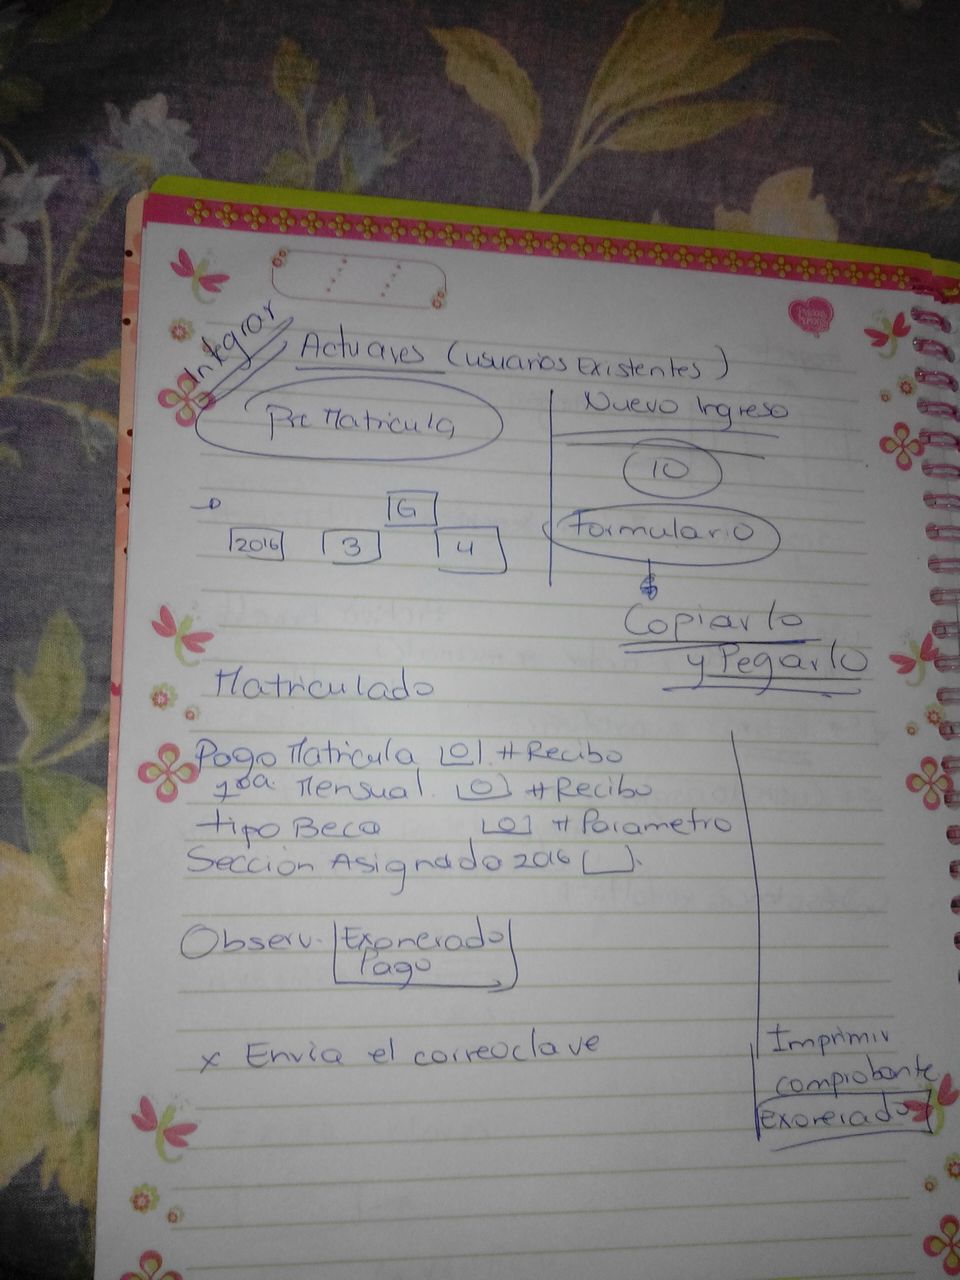 Integrar
Actuales (usuarios Existentes)
Pre Matricula
Nuevo Ingreso
10
Formulario
G
2016 3 4
Copiarlo
y Pegarlo
Matriculado
Pago Matricula 0 #Recibo
1ra Mensual. 0 #Recibo
tipo Beca 0 #Parametro
Sección Asignado 2016
Observ. Exonerado
Pago
x Envia el correoclave
Imprimir
comprobante
exonerado